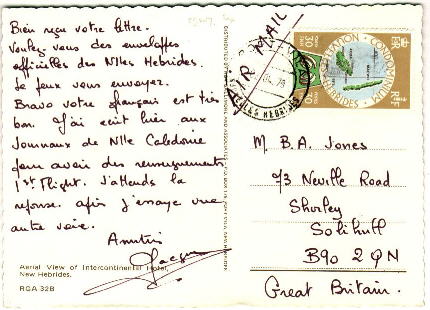 Bien reçu votre lettre.
Voulez vous des enveloppes
officielles des Nlles Hebrides.
Je peux vous envoyer.
Bravo votre français est très
bon. J'ai écrit hier aux
Journaux de Nlle Caledonie
pour avoir des renseignements
1st Flight. J'attends la
reponse. après j'essaye une
autre voie.
Amitiés
Jacques
Aerial View of Intercontinental Hotel,
New Hebrides.
RGA 32B
AIR MAIL
CONDOMINIUM
HEBRIDES
M. B.A. Jones
73 Neville Road
Shirley
Solihull
B90 2QN
Great Britain.